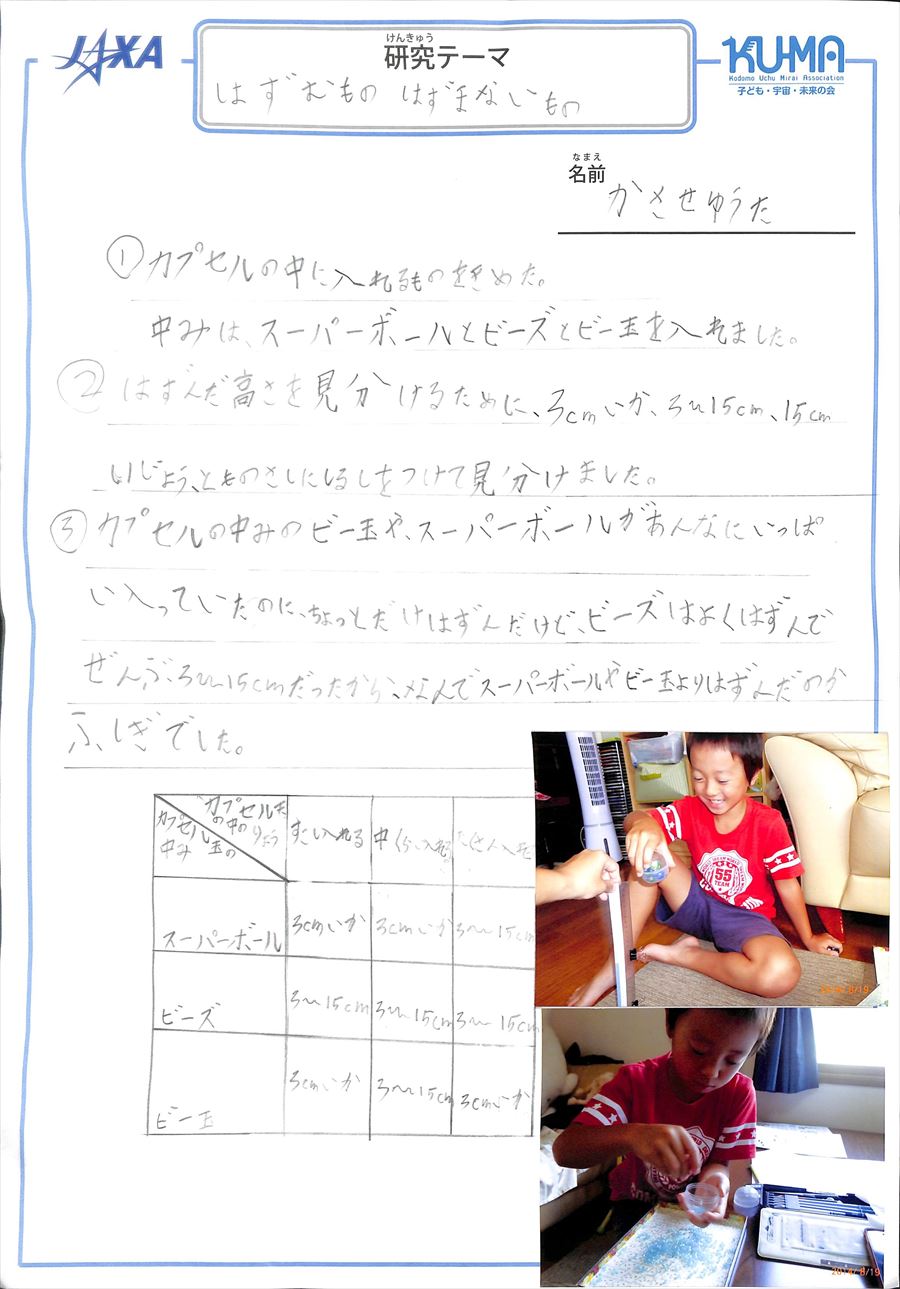 JAXA
けんきゅう
研究テーマ
はずむもの はずまないもの
KU-MA
Kodomo Uchu Mirai Association
子ども・宇宙・未来の会
なまえ
名前
かさせゆうた
① カプセルの中に入れるものをきめた。
中みは、スーパーボールとビーズとビー玉を入れました。
② はずんだ高さを見分けるために、3cmいか、3〜15cm、15cm
いじょう、とものさしにしるしをつけて見分けました。
③ カプセルの中みのビー玉や、スーパーボールがあんなにいっぱ
い入っていたのに、ちょっとだけはずんだけど、ビーズはよくはずんで
ぜんぶ、3〜15cmだったから、なんでスーパーボールやビー玉よりはずんだのか
ふしぎでした。
カプセル玉の中のりょう
カプセル玉の中み
中くらい入れる
スーパーボール 3cmいか 3cmいか 3〜15cm
ビーズ 3〜15cm 3〜15cm 3〜15cm
ビー玉 3cmいか 3〜15cm 3cmいか
55
TEAM
8/19
2014/8/19